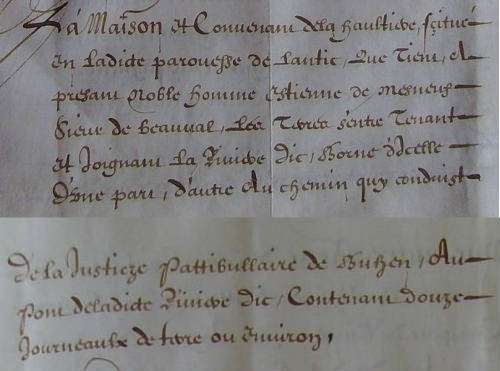 La Maison et Convenant de la haultieve, scitué
En Ladicte parouesse de Lantic, Que Tient, A
presant Noble homme Estienne de Mesneuf
Sieur de beauval, Les Terres s'entre Tenant
et Joignant La Riviere d'ic, Borne d'Icelle
D'Une part, d'autre Au chemin quy conduist
De la Justicze Pattibullaire de Buhen, Au
Pont deladicte Riviere d'ic, Contenant douze
Journeaulx de terre ou environ,